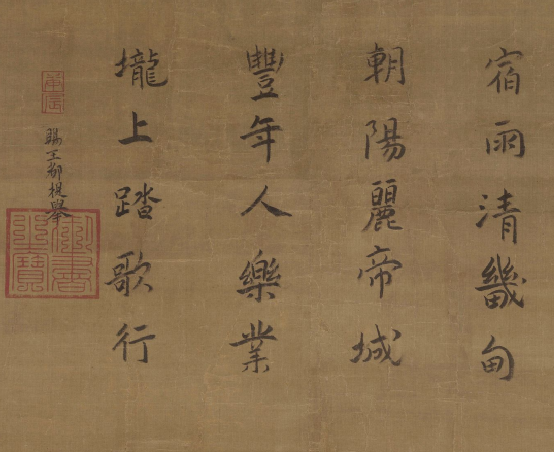 宿雨清畿甸
朝陽麗帝城
豐年人樂業
壠上踏歌行
賜王都提舉
御書之寶